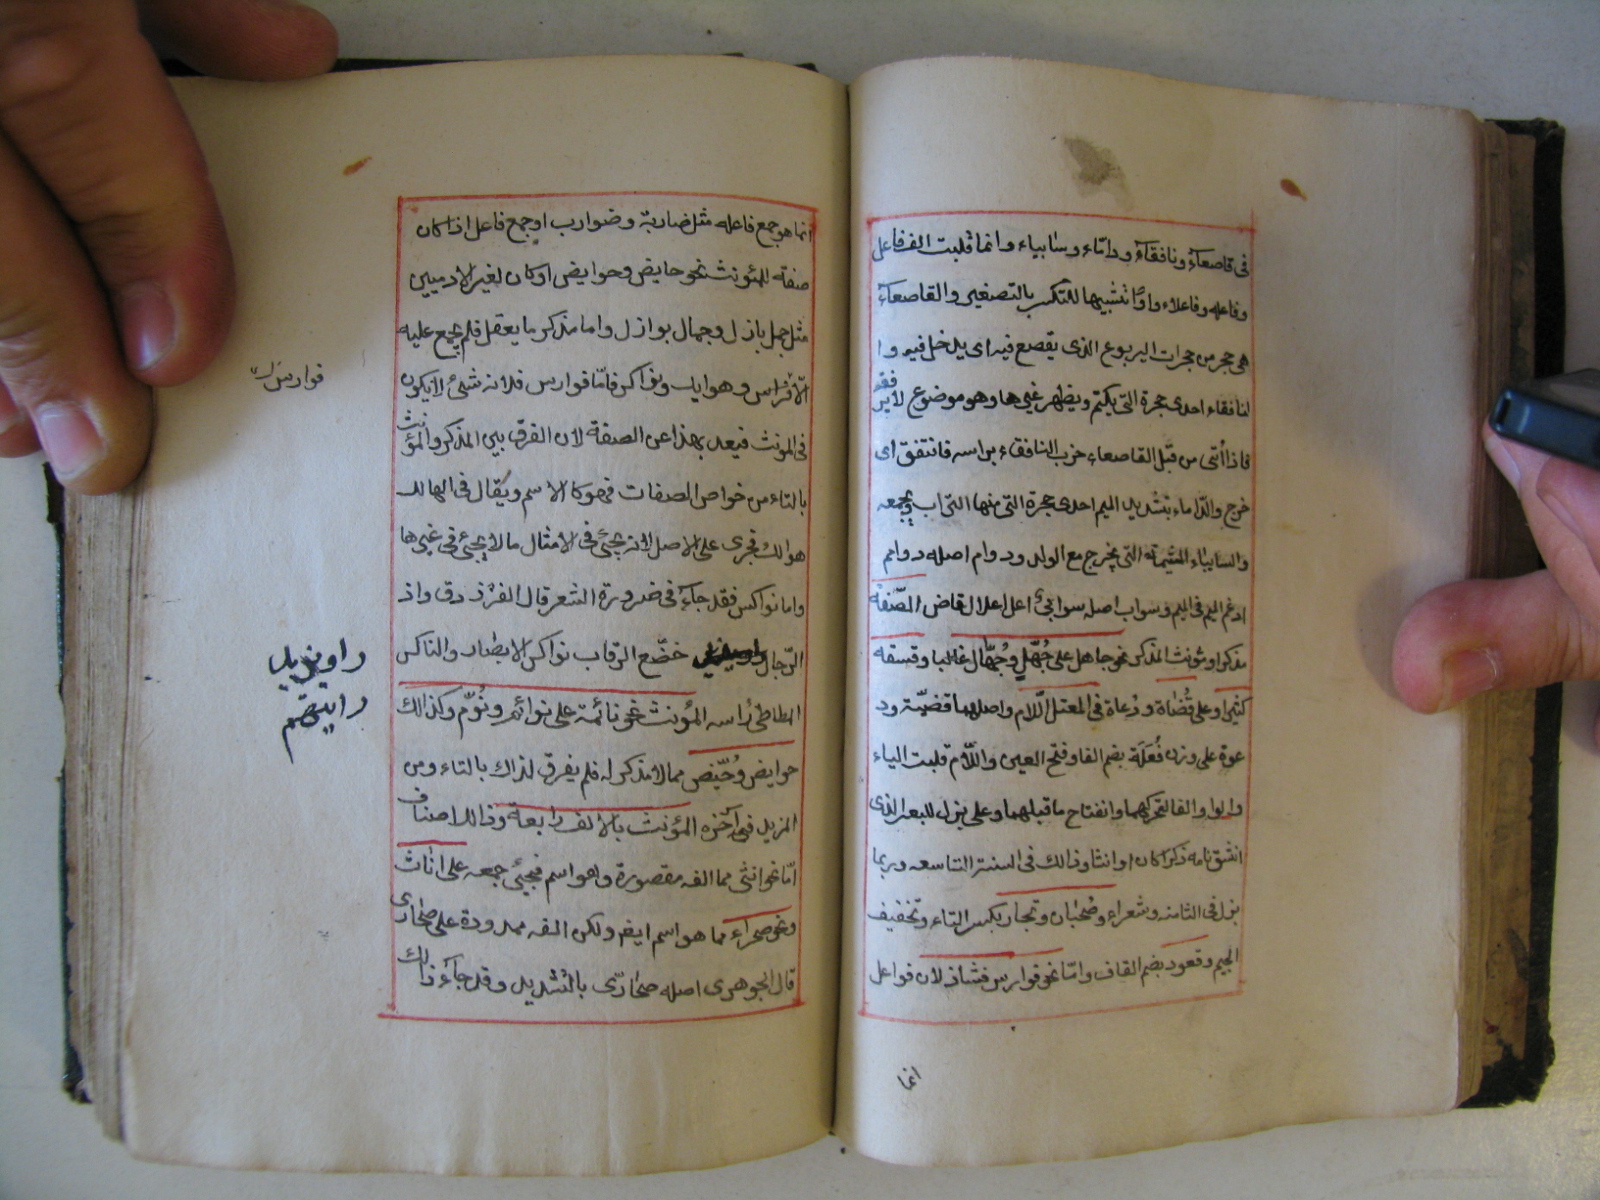 فى قاصعاء ونافقاء وداماء وسابياء وانما قلبت الف فاعل
وفاعله وفاعلاء واوا تشبيها للتكسر بالتصغير والقاصعاء
هى حجر من حجرات اليربوع الذى يقصع فيه اى يدخل فيه وا
لنافقاء احدى حجرة التى يكتم ويظهر غيرها وهو موضوع لايرفقه
فاذا أتى من قبل القاصعاء ضرب النافقاء براسه فانتفق اى
خرج والداماء بتشديد الميم احدى حجرة التى منها التراب ويجمعه
والسابياء المشيمة التى يخرج مع الولد ودوام اصله دوامم
ادغم الميم فى الميم وسواب اصله سوابى اعل اعلال قاض الصفة
مذكرا ومؤنث المذكر نحو جاهل على جُهّل وجُهّال غالبا وفسقه
كثيرا وعلى قُضاة ودُعاة فى المعتل اللام واصلهما قضية ود
عوة على وزن فُعَلَة بضم الفا وفتح العين واللام قلبت الياء
والواو الفا لتحركهما وانفتاح ما قبلهما وعلى بزل للبعير الذى
انشق نابه ذكرا كان او انثا وذالك فى السنة التاسعه وربما
بزل فى الثامنه وشعراء وصُحبان وتجار بكسر التاء وتخفيف
الجيم وقعود بضم القاف واما نحو فوارس فشاذ لان فواعل
انما
انما هو جمع فاعله مثل ضاربة وضوارب او جمع فاعل اذا كان
صفته للمؤنث نحو حايض وحوايض او كان لغير الادميين
مثل جمل بازل وجمال بوازل واما مذكر ما يعقل فلم يجمع عليه
الا فوارس وهوالك ونواكس فامّا فوارس فلانه شئ لا يكون
فى المؤنث فيعد بهذا عن الصفة لان الفرق بين المذكر والمؤنث
بالتاء من خواص الصفات فهو كالاسم ويقال فى الهالك
هوالك فجرى على الاصل لانه يجئ فى الامثال ما لا يجئ فى غيرها
واما نواكس فقد جاء فى ضرورة الشعر قال الفرزدق واذ
الرجال خضّع الرقاب نواكس الابصار والناكس
المطاطئ راسه المؤنث نحو نائمة على نوائم ونُوّم وكذالك
حوايض وحُيّض مما لا مذكر له فلم يفرق لذاك بالتاء ومن
المزيد فى آخره المؤنث بالالف رابعة وذالك اصناف
امّا نحو انثى مما الفه مقصورة وهو اسم فيجئ جمعه على اناث
ونحو صحراء مما هو اسم ايضا ولكن الفه ممدودة على صحارى
قال الجوهرى اصله صحارّى بالتشديد وقد جاء ذالك
فوارس
راو يزيد
رايتهم